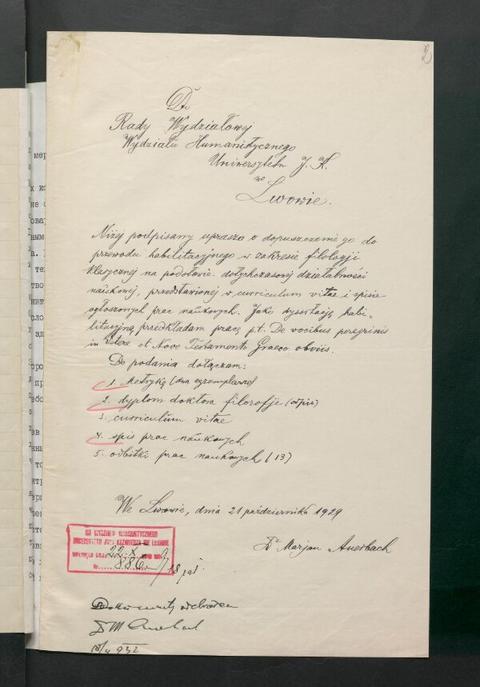 2
Do
Rady Wydziałowej
Wydziału Humanistycznego
Uniwersytetu J. K.
we
Lwowie.
Niżej podpisany uprasza o dopuszczenie go do
przewodu habilitacyjnego w zakresie filologji
klasycznej na podstawie dotychczasowej działalności
naukowej, przedstawionej w curriculum vitae i spisie
ogłoszonych prac naukowych. Jako dysertację habi-
litacyjną przedkładam pracę p.t. De vocibus peregrinis
in Vetere et Novo Testamento Graeco obviis.
Do podania dołączam:
1. metrykę (dwa egzemplarze)
2. dyplom doktora filozofji (odpis)
3. curriculum vitae
4. spis prac naukowych
5. odbitki prac naukowych (13)
We Lwowie, dnia 21 października 1929
Dr Marjan Auerbach
22.X
Dokumenty odebrałem